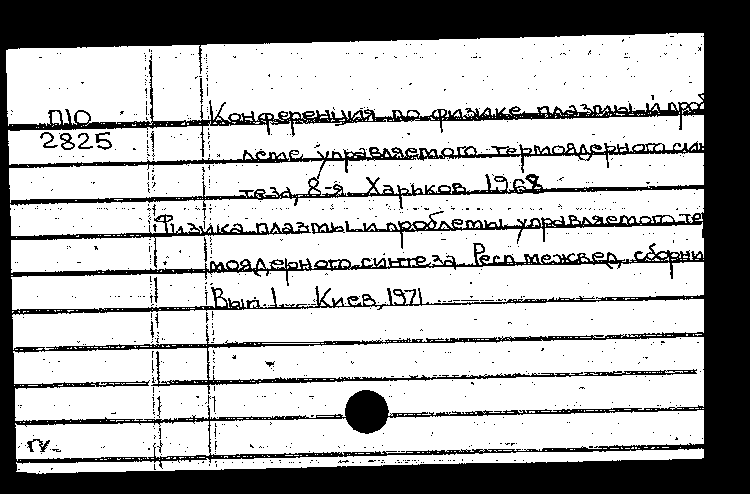 П10
2825
Конференция по физике плазмы и проб
леме управляемого термоядерного син
теза, 8-я. Харьков. 1968
Физика плазмы и проблемы управляемого тер
моядерного синтеза. Респ. межвед. сборни
Вып. 1. Киев, 1971